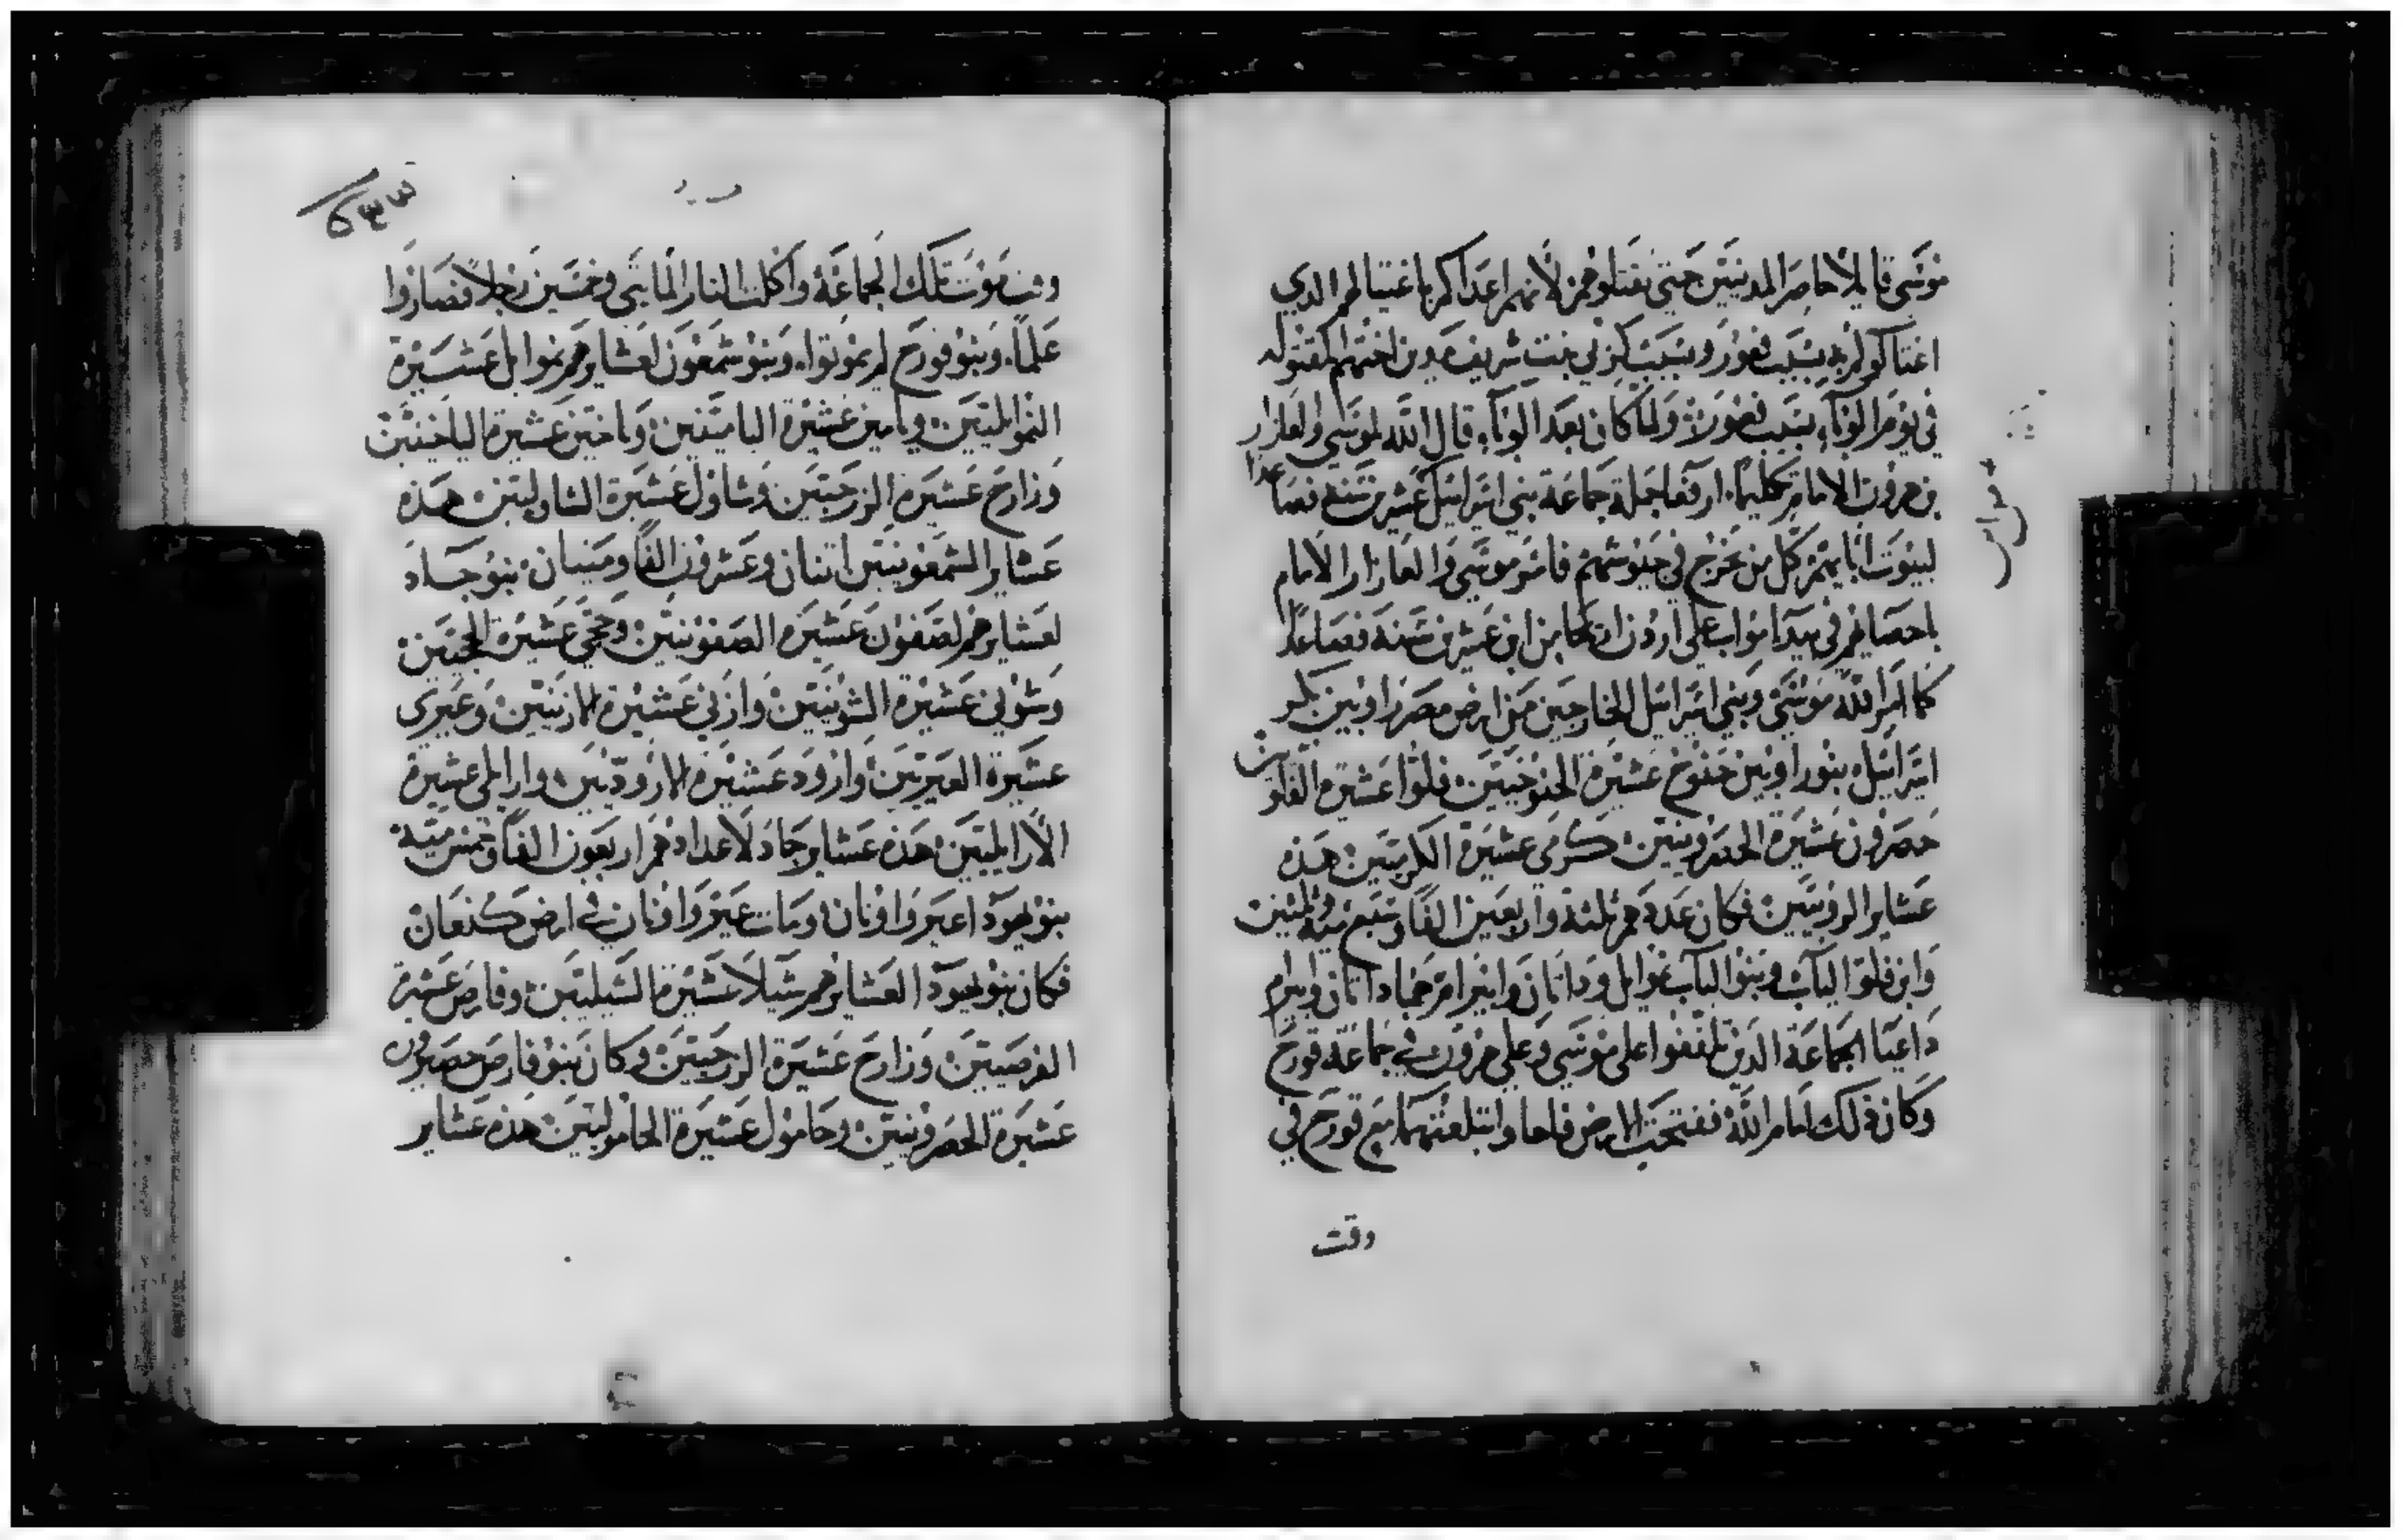 موسى قايلا حاصر المدينتين حتى تقتلوهم لانهم اعدا لكم باغتيالهم الذي
اغتالوكم به بسبب فعور وبسبب كزبي بنت شريف مدين اختهم المقتوله
في يوم الوباء بسبب فعور ولما كان بعد الوباء قال الله لموسى والعازار
بن هرون الامام كليهما ارفعا جملة جماعة بني اسرائيل من عشرين سنه فصاعدا
لبيوت ابايهم كل من يخرج في جيوشهم فامر موسى والعازار الامام
باحصايهم في بيدا مواب على اردن اريحا من ابن عشرين سنه فصاعدا
كما امر الله موسى وبني اسرائيل الخارجين من ارض مصر راوبين بكر
اسرائيل بنو راوبين حنوخ عشيرة الحنوخيين فلوا عشيرة الفلويين
حصرون عشيرة الحصرونيين كرمي عشيرة الكرميين هذه
عشاير الروبنيين فكان عددهم ثلثة واربعين الفا وسبع مية وثلثين
وابن فلوا الياب وبنوا الياب نموايل وداثان وابيرام هما داثان وابيرام
داعيا الجماعة الذين تلقفوا على موسى وعلى هرون في جماعة قورح
وكان ذلك امام الله ففتحت الارض فاها وابتلعتهما مع قورح في
وقت
وقت موت تلك الجماعة واكلت النار المايتي وخمسين رجلا فصاروا
علما وبنو قورح لم يموتوا وبنو شمعون لعشايرهم نموايل عشيرة
النموايليين ويامين عشيرة اليامينيين وياخين عشيرة الياخينيين
وزارح عشيرة الزرحيين وشاول عشيرة الشاوليين هذه
عشاير الشمعونيين اثنان وعشرون الفا وميتان بنو جاد
لعشايرهم لصفون عشيرة الصفونيين وحجي عشيرة الحجيين
وشوني عشيرة الشونيين وازني عشيرة الازنيين وعيري
عشيرة العيريين وارود عشيرة الاروديين وارايلي عشيرة
الارايليين هذه عشاير جاد لاعدادهم اربعون الفا وخمس مية
بنو يهودا عير واونان ومات عير واونان في ارض كنعان
فكان بنو يهودا لعشايرهم شيلا عشيرة الشيليين وفارص عشيرة
الفرصيين وزارح عشيرة الزرحيين وكان بنو فارص حصرون
عشيرة الحصرونيين وحامول عشيرة الحاموليين هذه عشاير